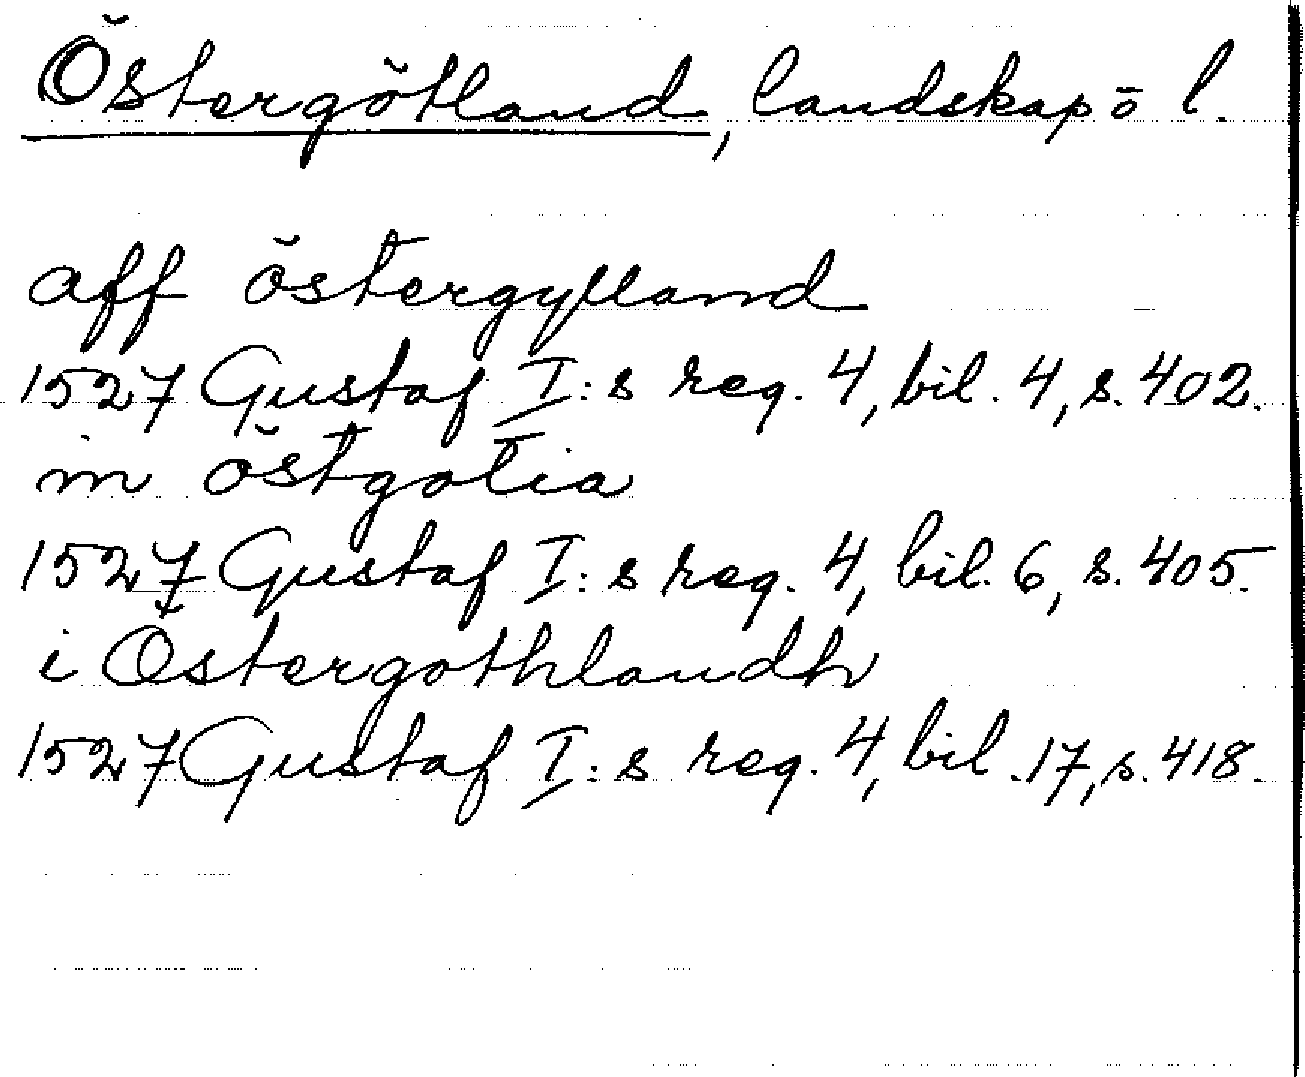 Östergötland, landskap ö l.
aff östergylland
1527 Gustaf I:s reg. 4, bil. 4, s. 402.
in östgotia
1527 Gustaf I:s reg. 4, bil. 6, s. 405.
i Östergothlandh
1527 Gustaf I:s reg. 4, bil. 17, s. 418.